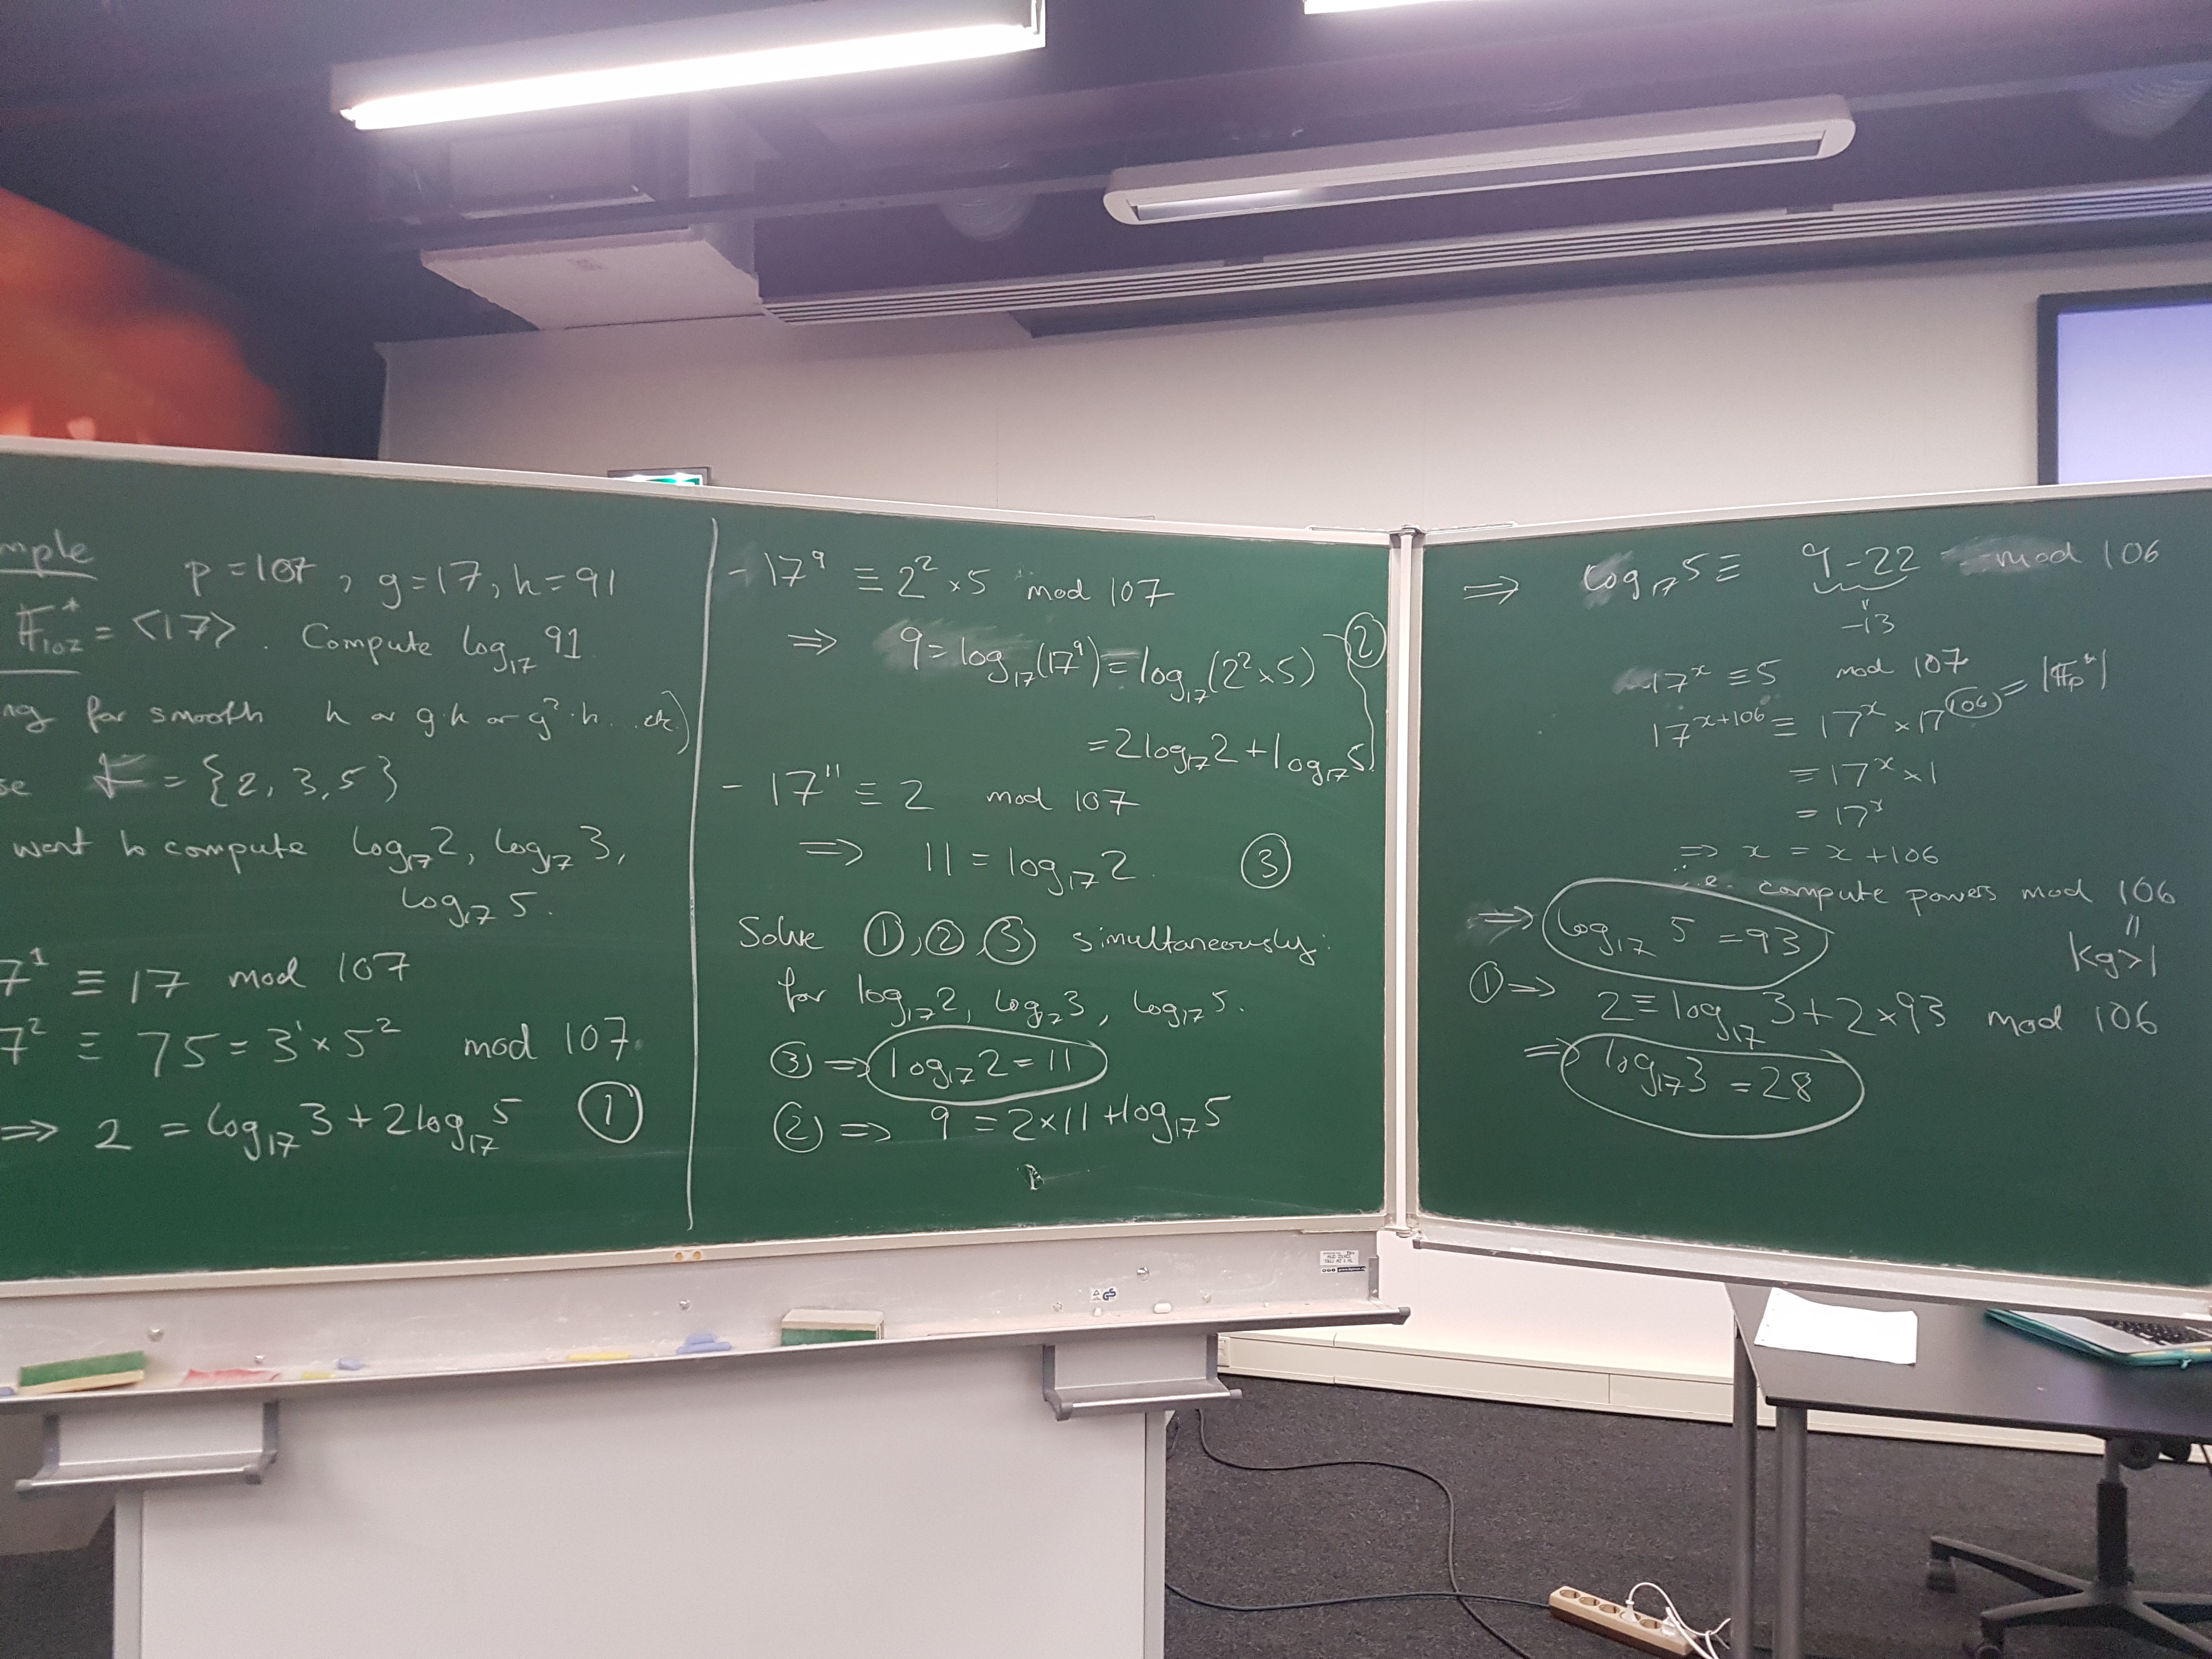 mple p = 107, g = 17, h = 91
𝔽*₁₀₇ = <17>. Compute log₁₇ 91
ng for smooth h or g·h or g²·h... etc)
se F = {2, 3, 5}
want to compute log₁₇ 2, log₁₇ 3,
log₁₇ 5.
7¹ ≡ 17 mod 107
7² ≡ 75 = 3¹ × 5² mod 107.
⇒ 2 = log₁₇ 3 + 2 log₁₇ 5 ①
- 17⁹ ≡ 2² × 5 mod 107
⇒ 9 = log₁₇(17⁹) ≡ log₁₇(2² × 5) ②
= 2 log₁₇ 2 + log₁₇ 5
- 17¹¹ ≡ 2 mod 107
⇒ 11 = log₁₇ 2. ③
Solve ①, ②, ③ simultaneously:
for log₁₇ 2, log₁₇ 3, log₁₇ 5.
③ ⇒ log₁₇ 2 = 11
② ⇒ 9 = 2 × 11 + log₁₇ 5
⇒ log₁₇ 5 ≡ 9 - 22 mod 106
"
-13
17ˣ ≡ 5 mod 107
17ˣ⁺¹⁰⁶ ≡ 17ˣ × 17¹⁰⁶ = |𝔽ₚ*|
≡ 17ˣ × 1
= 17ˣ
⇒ x = x + 106
i.e. compute powers mod 106
⇒ log₁₇ 5 = 93
"
|<g>|
① ⇒ 2 ≡ log₁₇ 3 + 2 × 93 mod 106
⇒ log₁₇ 3 = 28